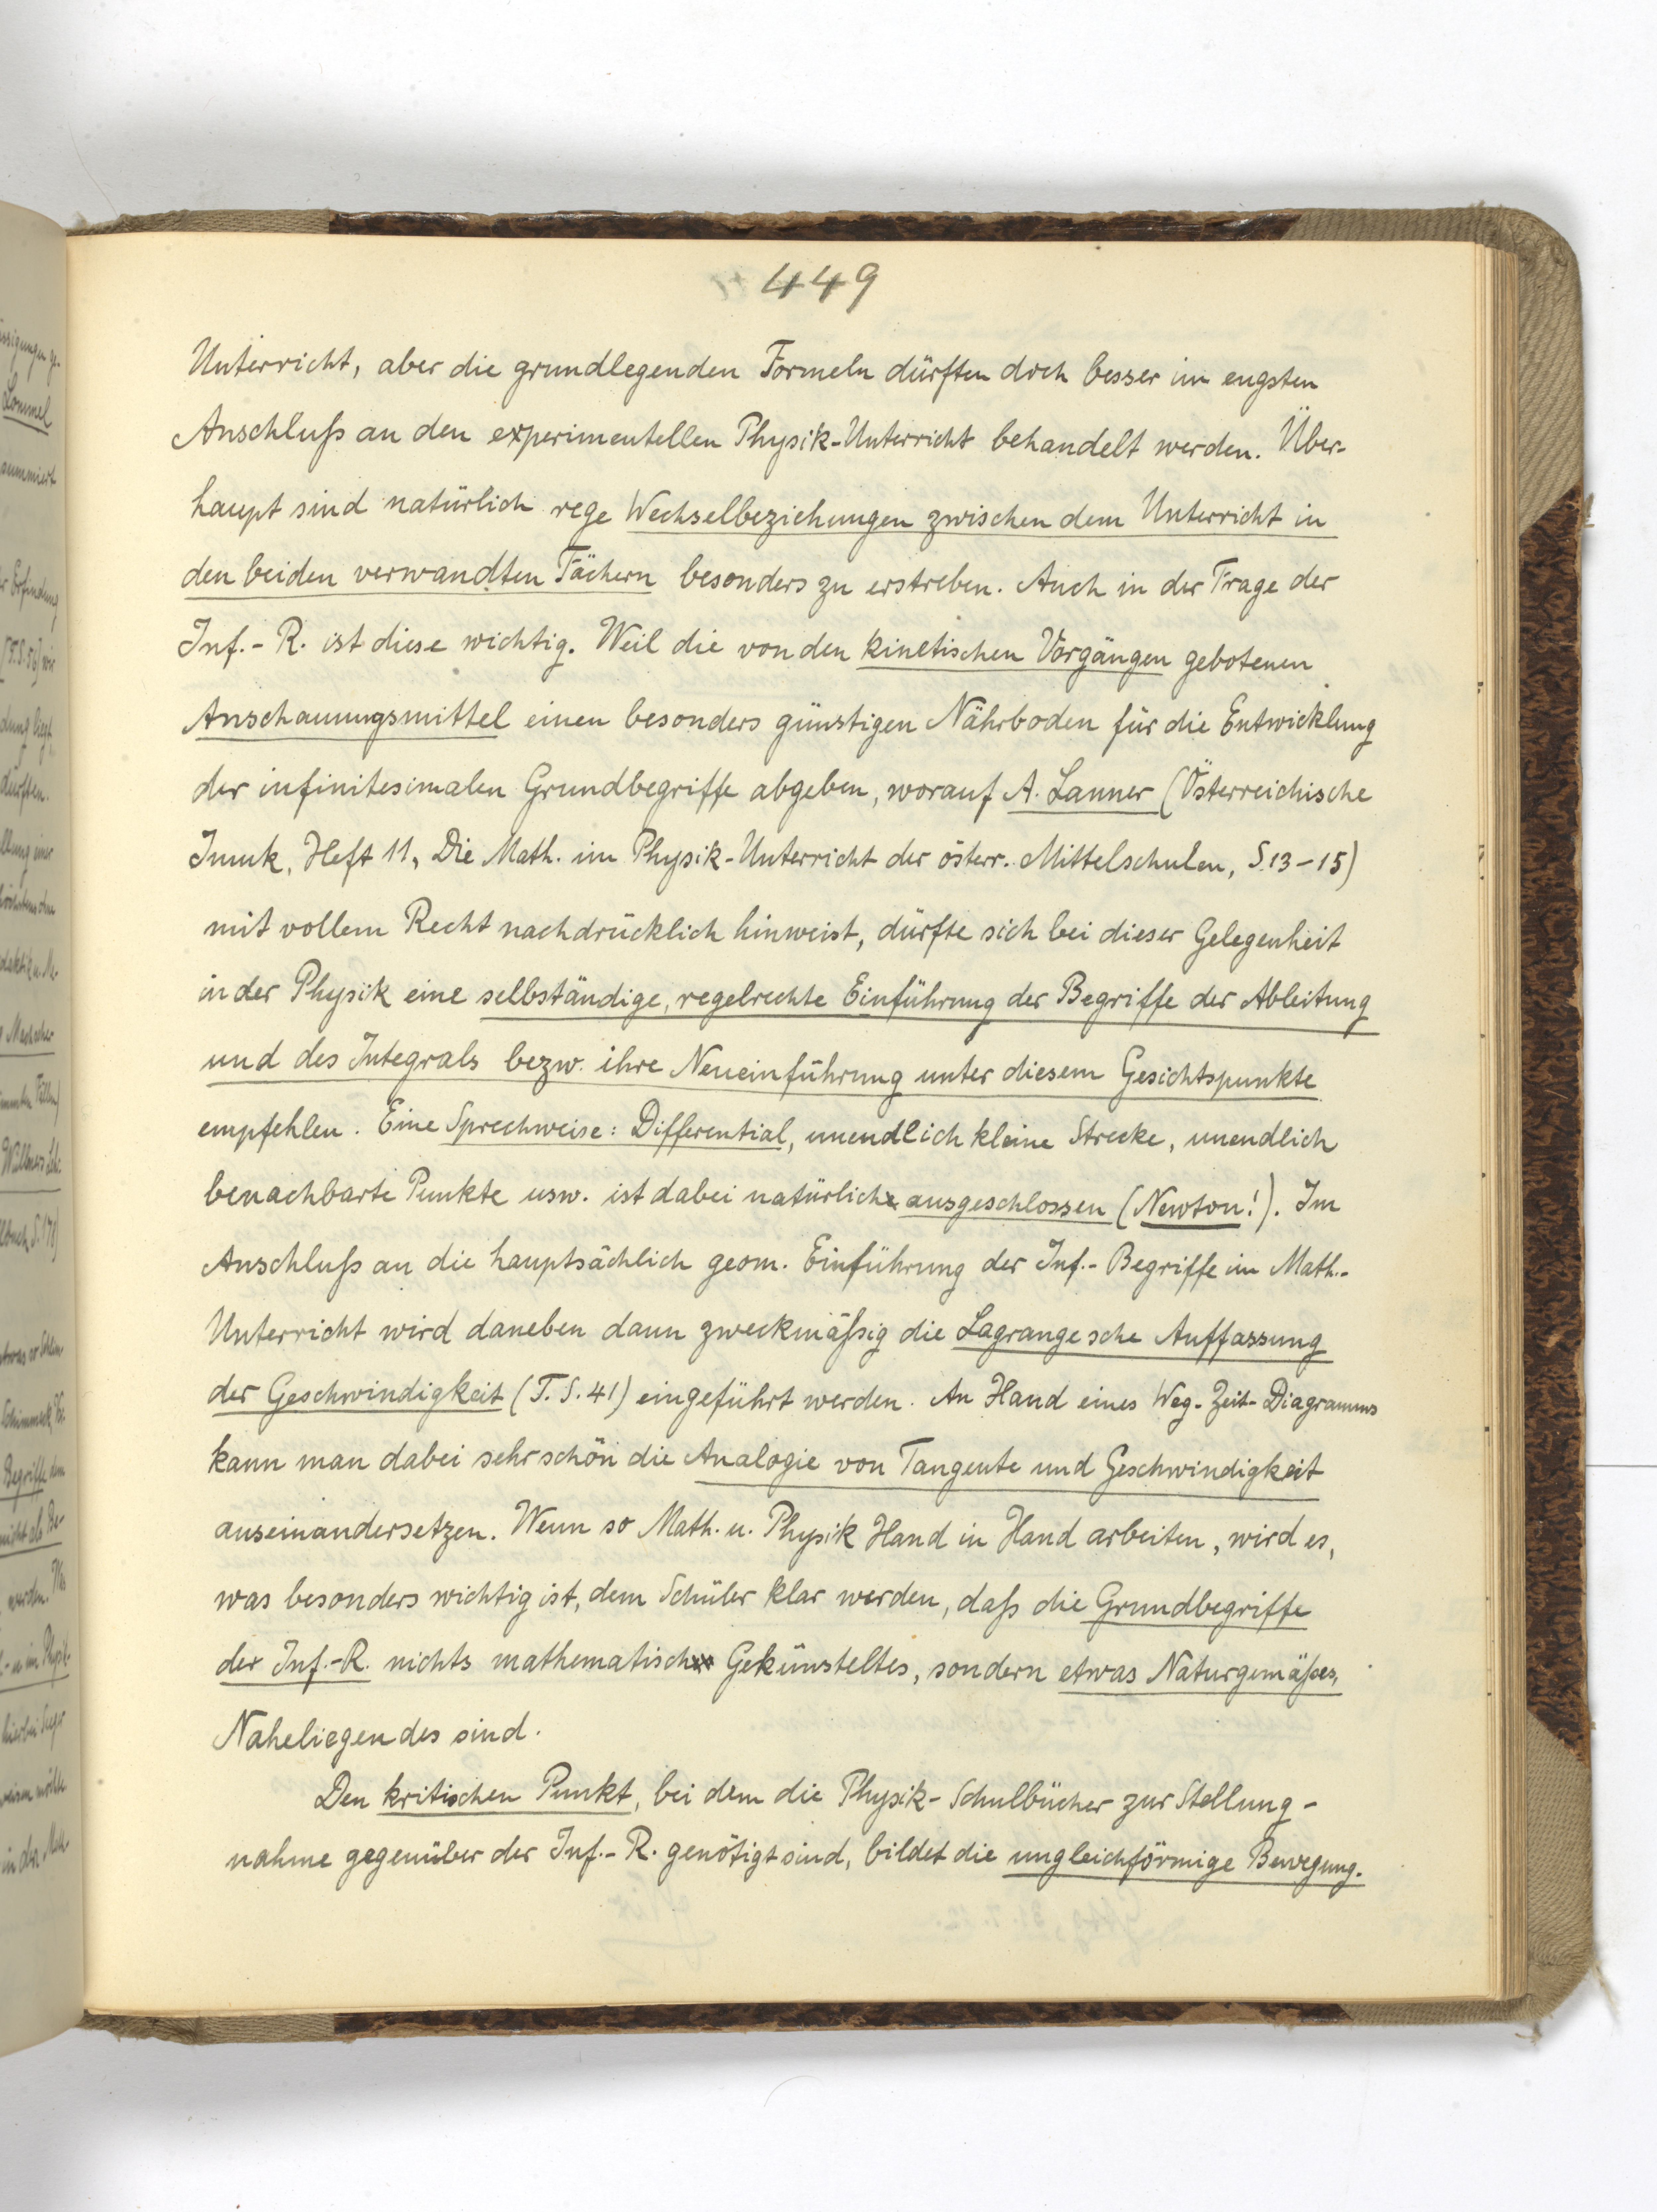 449
Unterricht, aber die grundlegenden Formeln dürften doch besser im engsten
Anschluß an den experimentellen Physik-Unterricht behandelt werden. Über-
haupt sind natürlich rege Wechselbeziehungen zwischen dem Unterricht in
den beiden verwandten Fächern besonders zu erstreben. Auch in der Frage der
Inf.-R. ist diese wichtig. Weil die von den kinetischen Vorgängen gebotenen
Anschauungsmittel einen besonders günstigen Nährboden für die Entwicklung
der infinitesimalen Grundbegriffe abgeben, worauf A. Lanner (Österreichische
Imuk, Heft 11, Die Math. im Physik-Unterricht der österr. Mittelschulen, S. 13-15)
mit vollem Recht nachdrücklich hinweist, dürfte sich bei dieser Gelegenheit
in der Physik eine selbständige, regelrechte Einführung der Begriffe der Ableitung
und des Integrals bezw. ihre Neueinführung unter diesem Gesichtspunkte
empfehlen. Eine Sprechweise: Differential, unendlich kleine Strecke, unendlich
benachbarte Punkte usw. ist dabei natürlich ausgeschlossen (Newton!). Im
Anschluß an die hauptsächlich geom. Einführung der Inf.-Begriffe im Math.-
Unterricht wird daneben dann zweckmäßig die Lagrangesche Auffassung
der Geschwindigkeit (T. S. 41) eingeführt werden. An Hand eines Weg-Zeit-Diagramms
kann man dabei sehr schön die Analogie von Tangente und Geschwindigkeit
auseinandersetzen. Wenn so Math. u. Physik Hand in Hand arbeiten, wird es,
was besonders wichtig ist, dem Schüler klar werden, daß die Grundbegriffe
der Inf.-R. nichts mathematisch Gekünsteltes, sondern etwas Naturgemäßes,
Naheliegendes sind.
Den kritischen Punkt, bei dem die Physik-Schulbücher zur Stellung-
nahme gegenüber der Inf.-R. genötigt sind, bildet die ungleichförmige Bewegung.